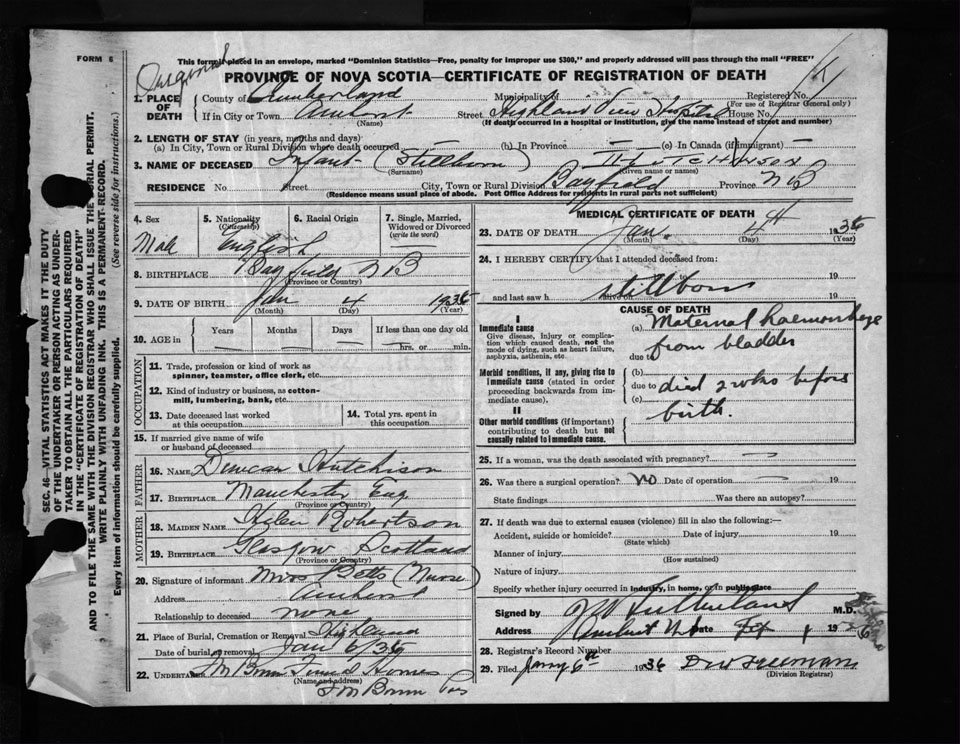 FORM 6
This form placed in an envelope, marked "Dominion Statistics—Free, penalty for improper use $300," and properly addressed will pass through the mail "FREE"
Original
PROVINCE OF NOVA SCOTIA—CERTIFICATE OF REGISTRATION OF DEATH
1. PLACE OF DEATH
County of Cumberland Municipality of Registered No.
(For use of Registrar General only)
If in City or Town Amherst Street Highland View Hospital House No.
(Name) (If death occurred in a hospital or institution, give the name instead of street and number)
2. LENGTH OF STAY (in years, months and days)
(a) In City, Town or Rural Division where death occurred — (b) In Province — (c) In Canada (if immigrant) —
3. NAME OF DECEASED Infant (Stillborn) HUTCHINSON
(Surname) (Given name or names)
RESIDENCE No Street City, Town or Rural Division Bayfield Province N B
(Residence means usual place of abode. Post Office Address for residents in rural parts not sufficient)
4. Sex Male
5. Nationality (Citizenship) English
6. Racial Origin
7. Single, Married, Widowed or Divorced (write the word)
8. BIRTHPLACE Bayfield N B
(Province or Country)
9. DATE OF BIRTH Jan 4 1936
(Month) (Day) (Year)
10. AGE in Years Months Days If less than one day old
— — — hrs. or min.
OCCUPATION
11. Trade, profession or kind of work as spinner, teamster, office clerk, etc.
12. Kind of industry or business, as cotton-mill, lumbering, bank, etc.
13. Date deceased last worked at this occupation
14. Total yrs. spent in this occupation
15. If married give name of wife or husband of deceased
FATHER
16. NAME Duncan Hutchison
17. BIRTHPLACE Manchester Eng
(Province or Country)
MOTHER
18. MAIDEN NAME Helen Robertson
19. BIRTHPLACE Glasgow Scotland
(Province or Country)
20. Signature of informant Mrs Potts (Nurse)
Address Amherst
Relationship to deceased none
21. Place of Burial, Cremation or Removal
Date of burial or removal Jan 6/36
22. UNDERTAKER Funeral Home
(Name and address)
MEDICAL CERTIFICATE OF DEATH
23. DATE OF DEATH Jan. 4 1936
(Month) (Day) (Year)
24. I HEREBY CERTIFY that I attended deceased from:
19
to 19
and last saw h alive on stillborn 19
CAUSE OF DEATH
I
Immediate cause
Give disease, injury or complication which caused death, not the mode of dying, such as heart failure, asphyxia, asthenia, etc.
Morbid conditions, if any, giving rise to immediate cause (stated in order proceeding backwards from immediate cause).
II
Other morbid conditions (if important) contributing to death but not causally related to immediate cause.
(a) Maternal haemorrhage
from bladder
due to
(b)
due to died 2 wks before
(c)
birth.
25. If a woman, was the death associated with pregnancy? —
26. Was there a surgical operation? NO Date of operation — 19
State findings Was there an autopsy?
27. If death was due to external causes (violence) fill in also the following:—
Accident, suicide or homicide? Date of injury 19
(State which)
Manner of injury
(How sustained)
Nature of injury
Specify whether injury occurred in industry, in home, or in public place
Signed by Sutherland M.D.
Address Amherst N.S. Date
28. Registrar's Record Number
29. Filed Jany 6th 1936
(Division Registrar)
SEC. 46—VITAL STATISTICS ACT MAKES IT THE DUTY
OF THE UNDERTAKER OR PERSON ACTING AS UNDER-
TAKER TO OBTAIN ALL THE PARTICULARS REQUIRED
IN THE "CERTIFICATE OF REGISTRATION OF DEATH"
AND TO FILE THE SAME WITH THE DIVISION REGISTRAR WHO SHALL ISSUE THE BURIAL PERMIT.
WRITE PLAINLY WITH UNFADING INK. THIS IS A PERMANENT RECORD.
Every item of information should be carefully supplied. (See reverse side for instructions.)